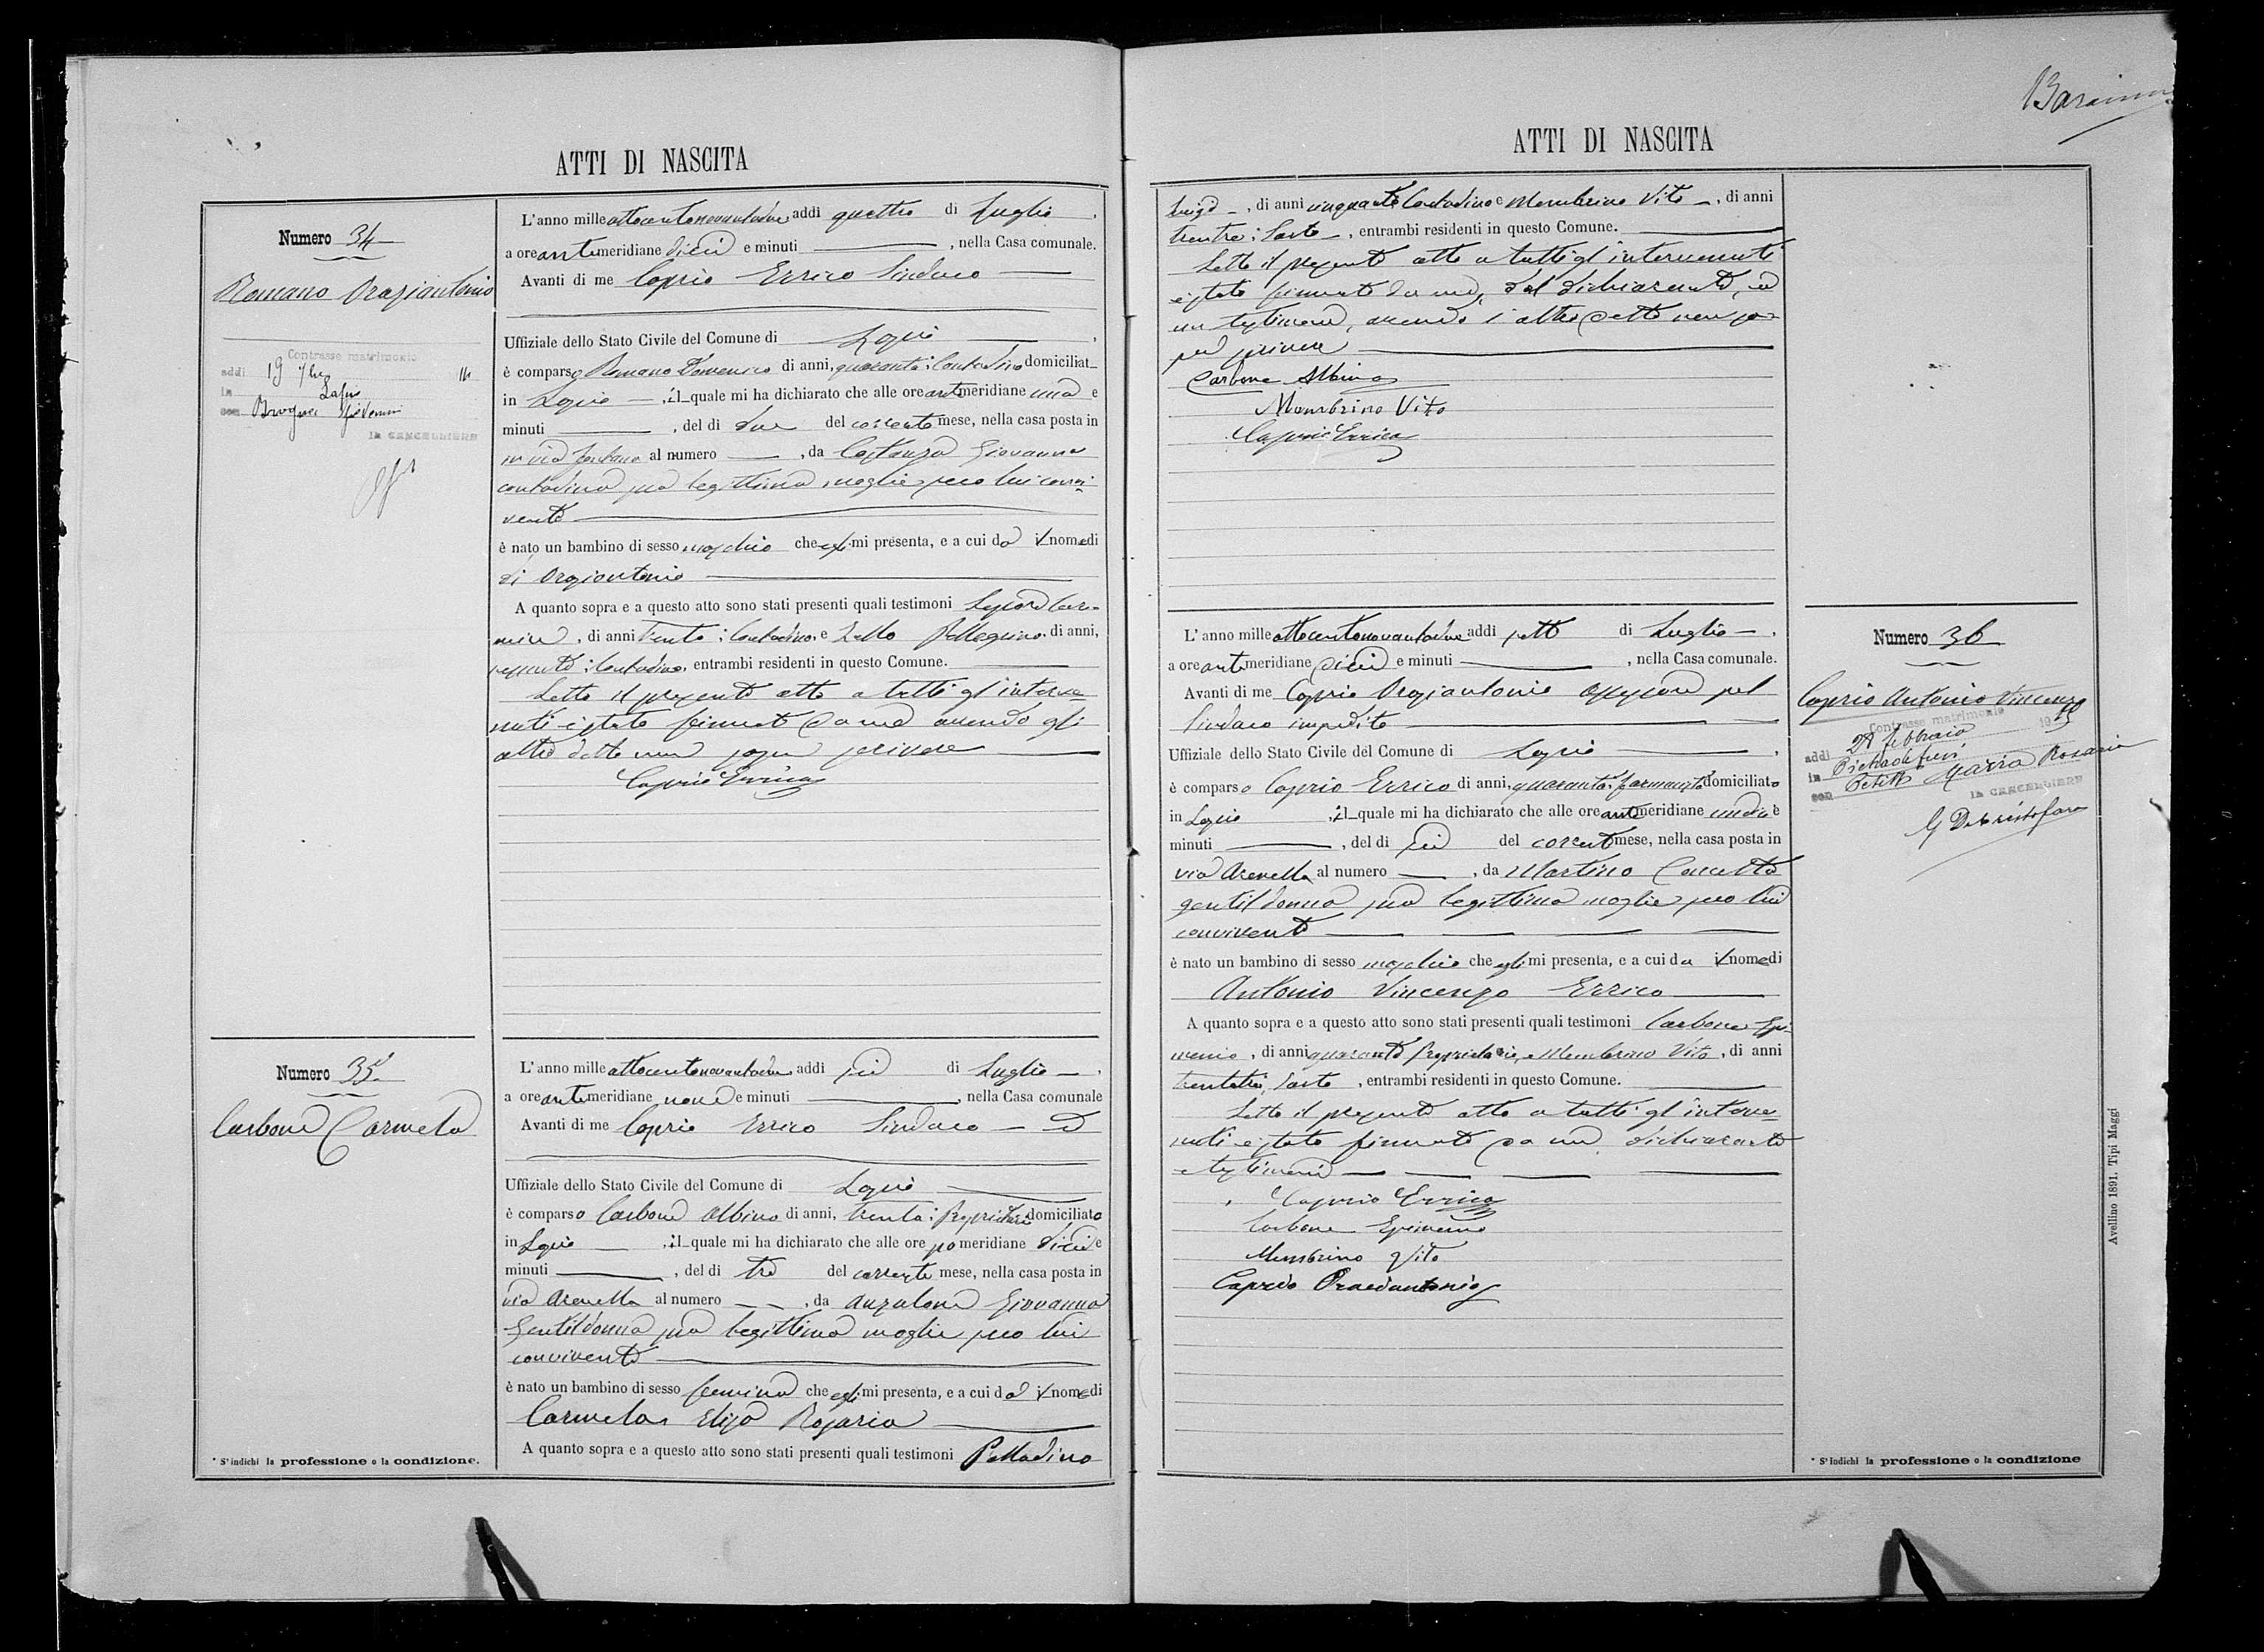 Barainn
ATTI DI NASCITA
Numero 34
Romano Oraziantonio
Contrasse matrimonio
addi 19 7bre 14
in Lapio
con
IL CANCELLIERE
L'anno mille ottocentonovantadue addi quattro di Luglio,
a ore antimeridiane dieci e minuti , nella Casa comunale.
Avanti di me Caprio Errico Sindaco
Uffiziale dello Stato Civile del Comune di Lapio,
è comparso Romano Domenico di anni, quaranta; Contadino domiciliat
in Lapio, il quale mi ha dichiarato che alle ore antimeridiane una e
minuti , del dì due del corrente mese, nella casa posta in
in via Fontana al numero , da Costanza Giovanna
contadina sua legittima moglie seco lui convi-
vente
è nato un bambino di sesso maschio che egli mi presenta, e a cui dà il nome di
di Oraziantonio
A quanto sopra e a questo atto sono stati presenti quali testimoni Car-
mine, di anni trenta; Contadino, e Pellegrino, di anni,
sessanta; Contadino, entrambi residenti in questo Comune.
Letto il presente atto a tutti gl'interve-
nuti è stato firmato da me avendo gli
altri detto non saper scrivere
Caprio Errico
Numero 35
Carbone Carmela
L'anno mille ottocentonovantadue addi sei di Luglio,
a ore antimeridiane nove e minuti , nella Casa comunale
Avanti di me Caprio Errico Sindaco
Uffiziale dello Stato Civile del Comune di Lapio
è comparso Carbone Albino di anni, trenta; Proprietario domiciliato
in Lapio, il quale mi ha dichiarato che alle ore pomeridiane dieci e
minuti , del dì tre del corrente mese, nella casa posta in
via Arenella al numero , da Anzalone Giovanna
Gentildonna sua legittima moglie seco lui
convivente
è nato un bambino di sesso femina che egli mi presenta, e a cui dà il nome di
Carmela Elisa Rosaria
A quanto sopra e a questo atto sono stati presenti quali testimoni Palladino
* S'indichi la professione o la condizione.
ATTI DI NASCITA
Luigi, di anni cinquanta Contadino e Membrino Vito, di anni
trentre; Sarto, entrambi residenti in questo Comune.
Letto il presente atto a tutti gl'intervenuti
è stato firmato da me, dal dichiarante, ed
un testimone, avendo l'altro detto non sa-
per scrivere
Carbone Albino
Membrino Vito
Caprio Errico
L'anno mille ottocentonovantadue addi sette di Luglio,
a ore antimeridiane dieci e minuti , nella Casa comunale.
Avanti di me Caprio Oraziantonio Assessore pel
Sindaco impedito
Uffiziale dello Stato Civile del Comune di Lapio,
è comparso Caprio Errico di anni, quaranta; farmacista domiciliato
in Lapio, il quale mi ha dichiarato che alle ore antimeridiane undici e
minuti , del dì sei del corrente mese, nella casa posta in
via Arenella al numero , da Martino Concetta
gentildonna sua legittima moglie seco lui
convivente
è nato un bambino di sesso maschio che egli mi presenta, e a cui da il nome di
Antonio Vincenzo Errico
A quanto sopra e a questo atto sono stati presenti quali testimoni Carbone Epi-
menio, di anni quaranta Proprietario, e Membrino Vito, di anni
trentatre, Sarto, entrambi residenti in questo Comune.
Letto il presente atto a tutti gl'interve-
nuti è stato firmato da me, dichiarante
e testimoni
Caprio Errico
Carbone Epimenio
Membrino Vito
Caprio Oraziantonio
Numero 36
Caprio Antonio Vincenzo
Contrasse matrimonio
addi 28 febbraio 1925
in Pietradefusi
con Petitti Maria Rosaria
IL CANCELLIERE
G DeCristofaro
* S'indichi la professione o la condizione
Avellino 1891. Tipi Maggi